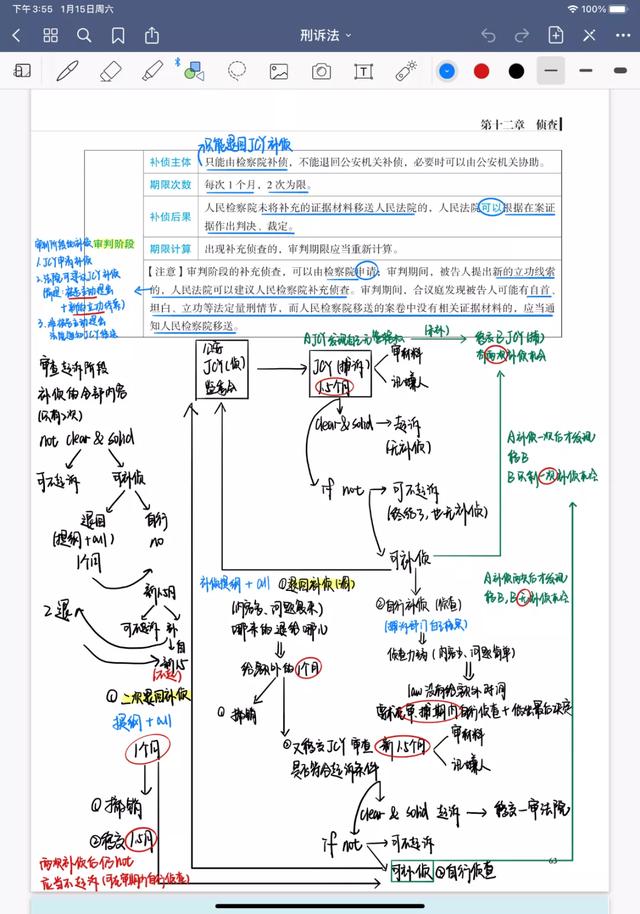 下午 3:55 1月15日周六
100%
刑诉法
第十二章 侦查
只能退回JCY补侦
补侦主体 只能由检察院补侦，不能退回公安机关补侦，必要时可以由公安机关协助。
期限次数 每次 1 个月，2 次为限。
补侦后果 人民检察院未将补充的证据材料移送人民法院的，人民法院可以根据在案证
据作出判决、裁定。
期限计算 出现补充侦查的，审判期限应当重新计算。
【注意】审判阶段的补充侦查，可以由检察院申请；审判期间，被告人提出新的立功线索
的，人民法院可以建议人民检察院补充侦查。审判期间，合议庭发现被告人可能有自首、
坦白、立功等法定量刑情节，而人民检察院移送的案卷中没有相关证据材料的，应当通
知人民检察院移送。
审判阶段的补侦 审判阶段
1. JCY申请补侦
2. 法院可建议JCY补侦
+新的立功线索)
审查起诉阶段
补侦的全部内容
(只有2次)
not clear & solid
可不起诉 可补侦
退回
(提纲+all)
1个月
自行
no
新1.5月
2退
可不起诉 补
自
新1.5
(不起)
① 二次退回补侦
提纲 + all
1个月
① 撤销
②移交 1.5月
两次补侦后仍not
应当不起诉 (可在审期内自行侦查)
公安
JCY(侦)
监委会
JCY(捕诉)
1.5个月
审材料
讯嫌人
clear & solid → 起诉
(无补侦)
if not → 可不起诉
(终结了，也无补侦)
可补侦
补侦提纲 + all ①退回补侦(调)
(内容多、问题复杂)
哪来的退给哪儿
给额外的 1个月
① 撤销
② 又移交JCY审查 新1.5个月
是否符合起诉条件
审材料
讯嫌人
②自行补侦 (侦查)
(捕诉部门自己搞)
侦查力弱 (内容少、问题简单)
law没有给额外时间
clear & solid 起诉 → 移交一审法院
if not → 可不起诉
可补侦 ②自行侦查
有两次补侦机会
A补侦一次后才发现
移B
B只剩一次补侦机会
A补侦两次后才发现
移B，B无补侦机会
63